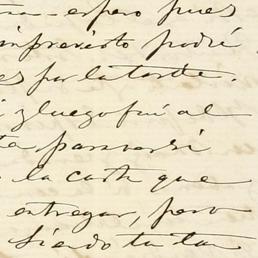 espero pues
imprevisto podré
es por la tarde.
y luego fui al
la carta que
entregar, pero
siendo tu tan